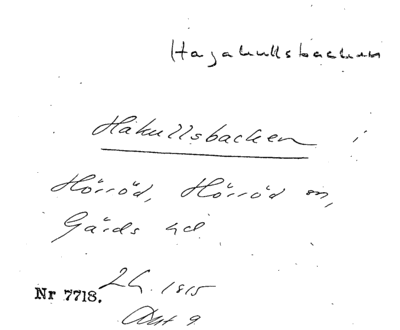 Hagakullsbacken
Hakullsbacken i
Hörröd, Hörröd sn,
Gärds hd
Nr 7718. LH. 1815
Akt 9